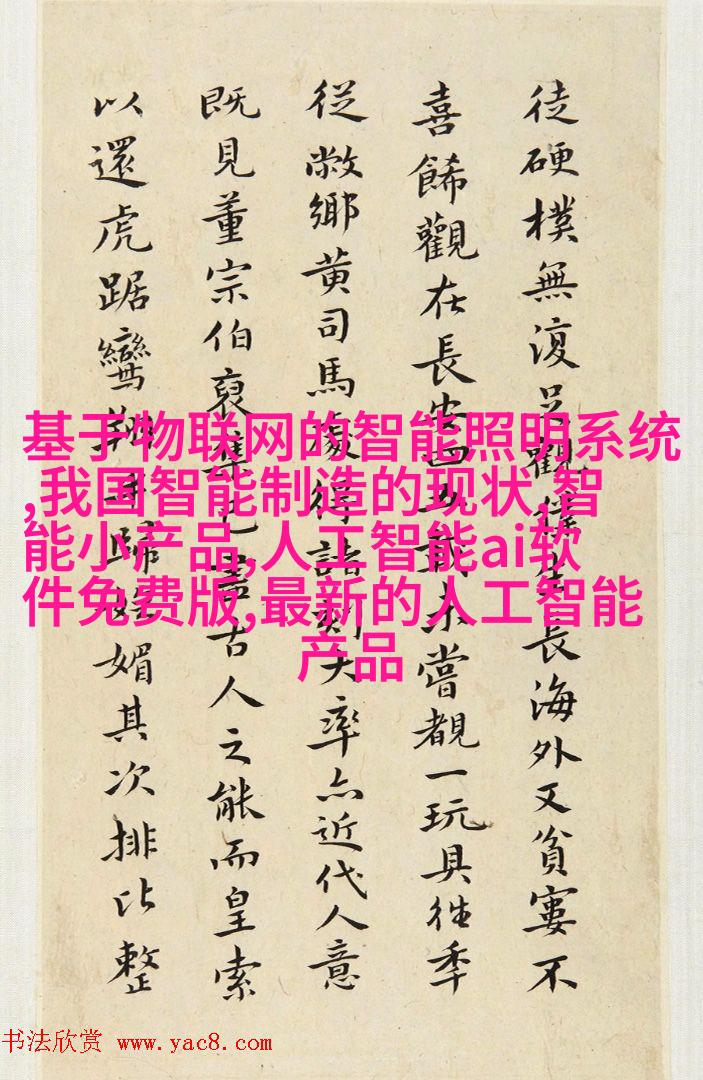 徒硬樸無復觀樸生長海外又貧寠不
喜餙觀在長安四五載未嘗覩一玩具往年
從敝鄉黃司馬處得諸刻大率亦近代人意
既見董宗伯裒集古人之能而皇索
以還虎踞鸞翔歸媚其次排比整
基于物联网的智能照明系统
,我国智能制造的现状,智
能小产品,人工智能ai软
件免费版,最新的人工智能
产品
书法欣赏 www.yac8.com